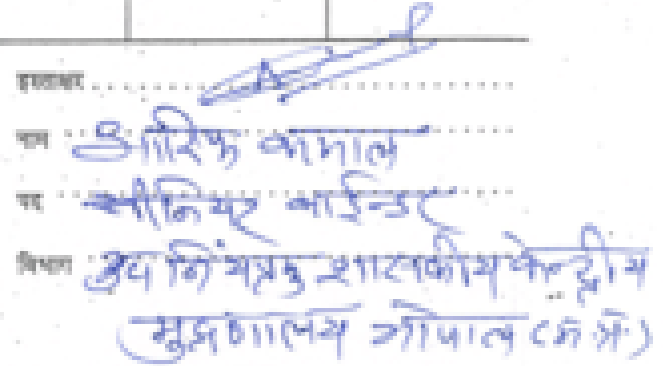 हस्ताक्षर
नाम आरिफ कमाल
पद सीनियर बाईन्डर
विभाग उप नियंत्रक शासकीय केन्द्रीय
मुद्रणालय भोपाल (म.प्र.)